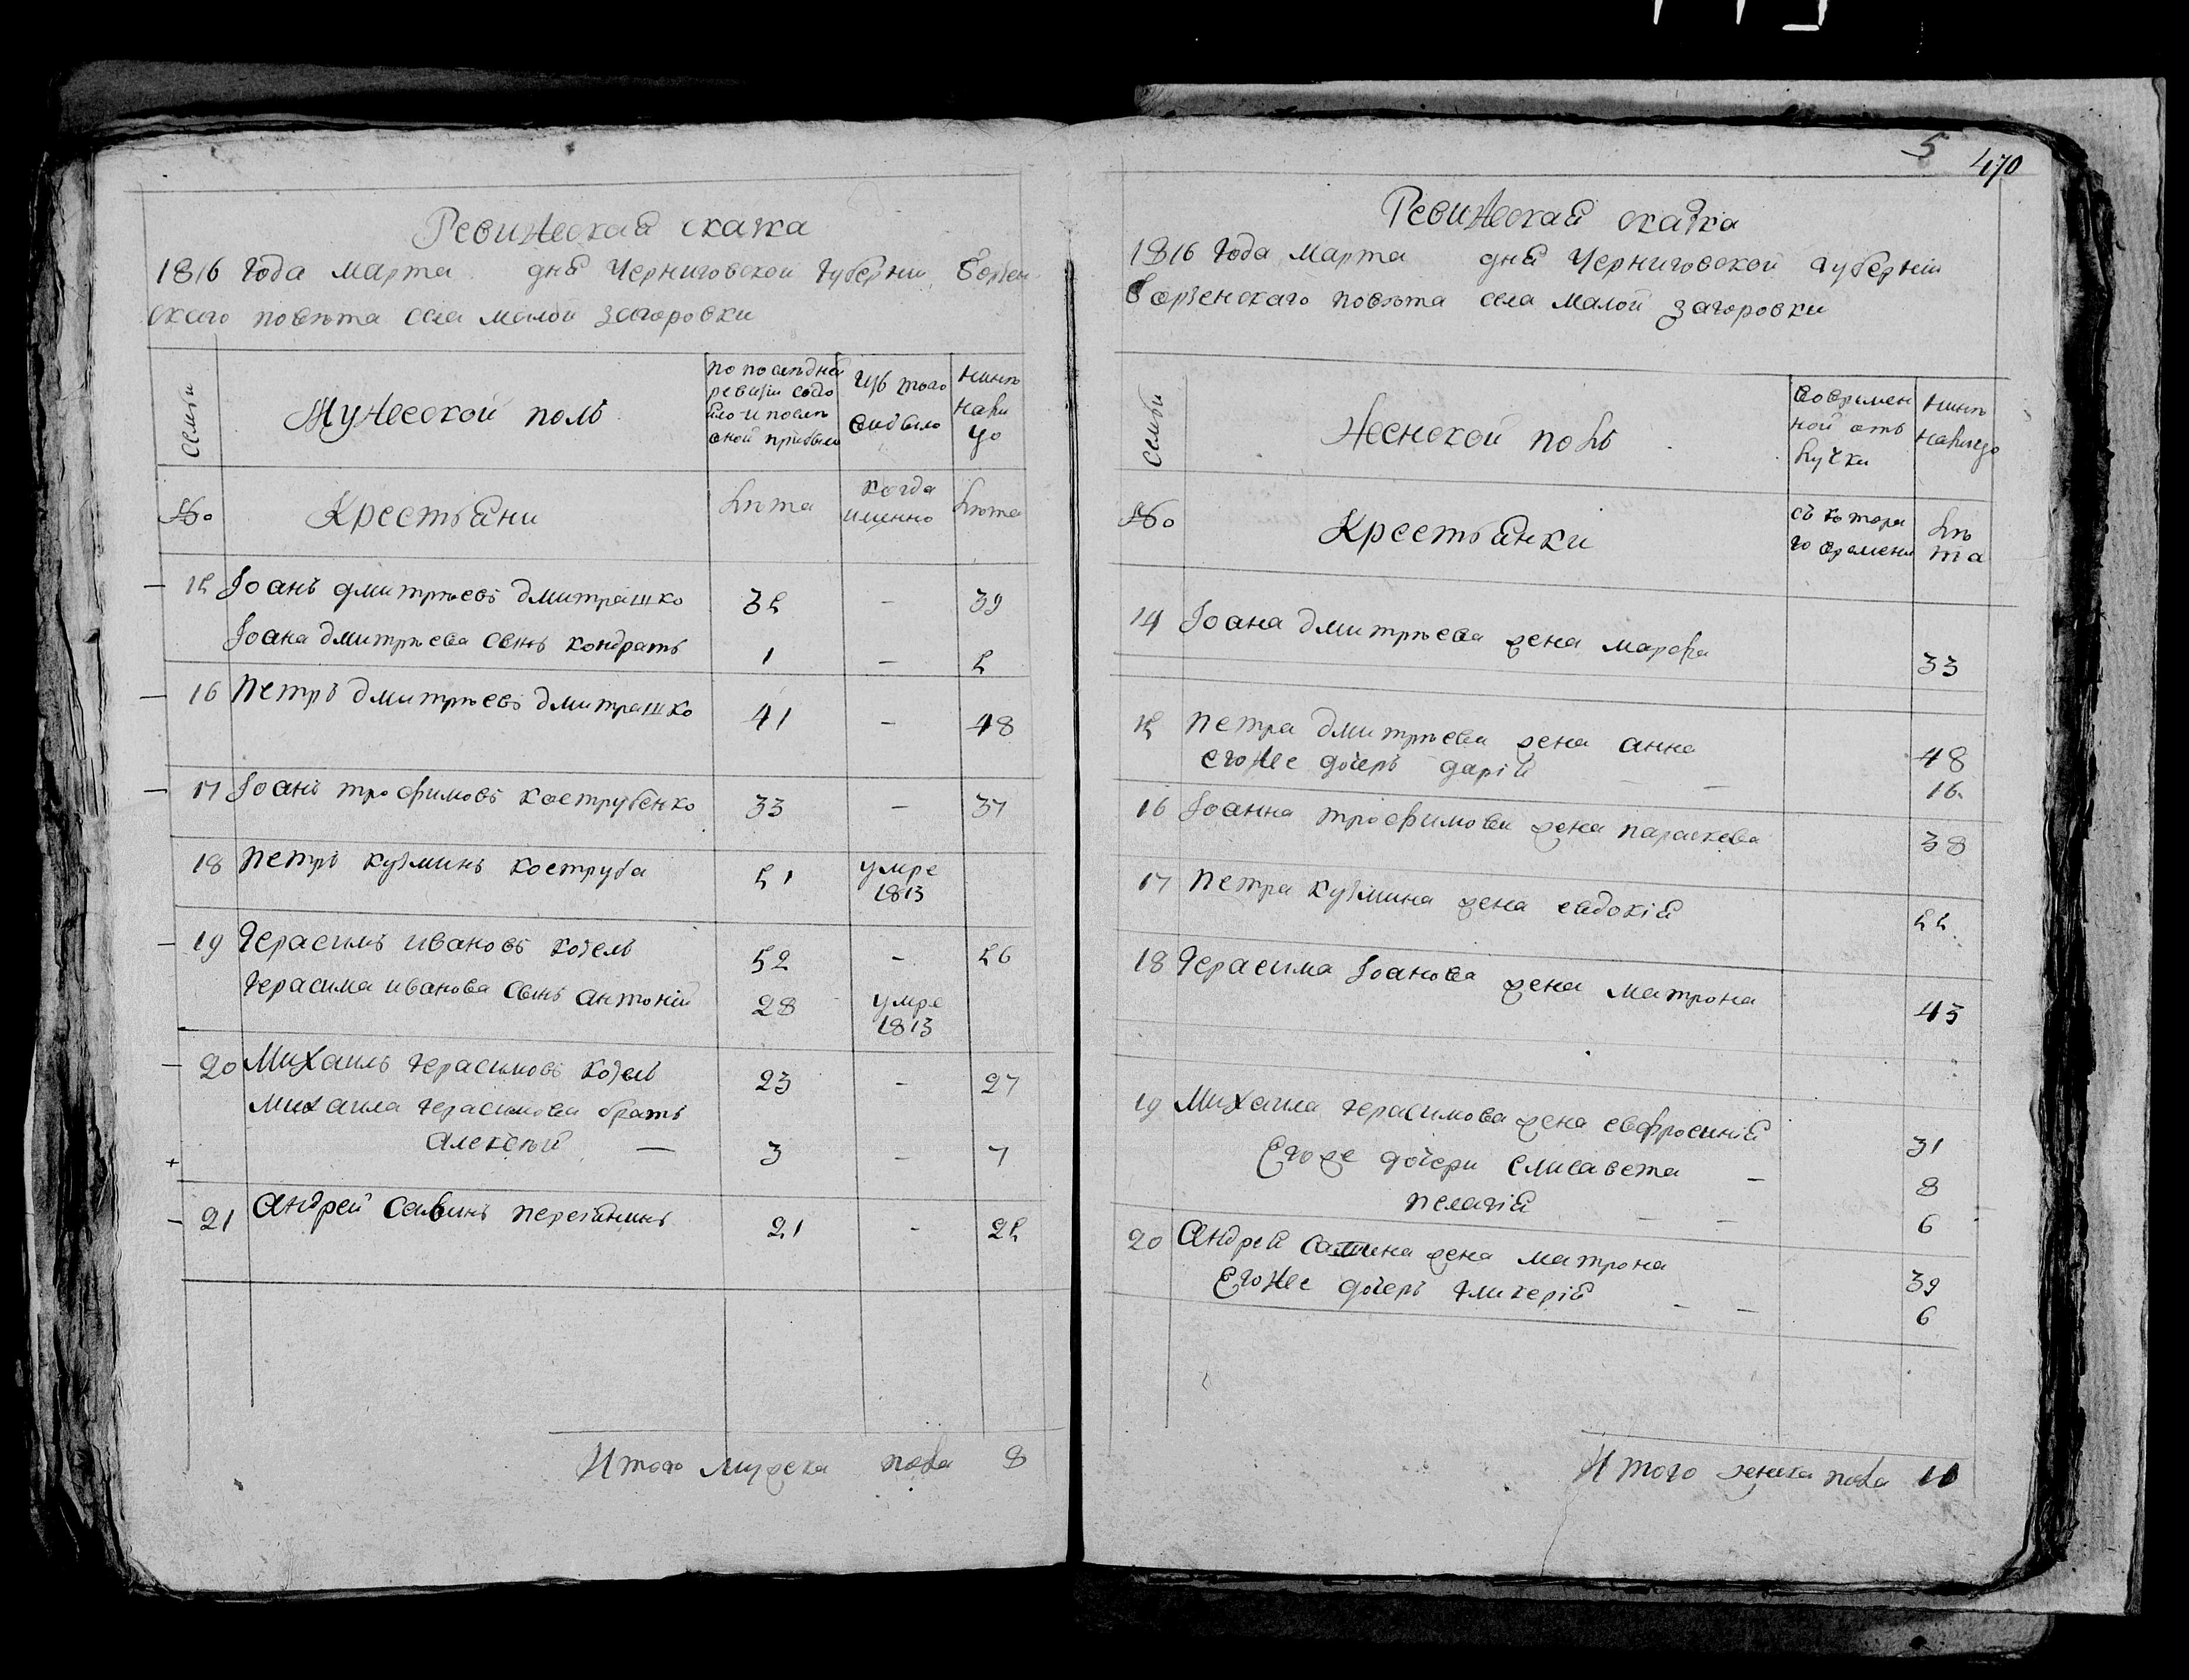 Ревижская сказка
1816 года марта дня Черниговской Губернии Борзен
скаго повѣта села малой загоровки
Семьи
Мужеской полъ
по последней
ревизіи состо
яло и после
оной прибыло
Изъ того
выбыло
Нынѣ
нали
цо
№
Крестьяни
Лѣта
когда
именно
Лѣта
15 Іоанъ дмитрѣевъ дмитрашко 35 – 39
Іоана дмитрѣева сынъ кондратъ 1 – 5
16 Петръ дмитрѣевъ дмитрашко 41 – 48
17 Іоанъ трофимовъ кострубенко 33 – 37
18 Петръ кузминъ коструба 51 умре
1813
19 Герасимъ ивановъ козелъ 52 – 56
Герасима иванова сынъ антоній 28 умре
1813
20 Михаилъ герасимовъ козелъ 23 – 27
Михаила герасимова братъ
алексѣй — 3 – 7
21 Андрей Савинъ 21 – 25
Итого мужска пола 8
5 470
Ревижская сказка
1816 года марта дня Черниговской губерніи
борзенскаго повѣта села малой загоровки
Семьи
Женской полъ
Во времен
ной отъ
лучки
Нынѣ
налицо
№
Крестьянки
съ котора
го времени
Лѣ
та
14 Іоана дмитрѣева жена марфа 33
15 Петра дмитрѣева жена анна 48
егоже дочеръ дарія — — 16
16 Іоанна трофимова жена параскева 38
17 Петра кузмина жена евдокія 55
18 Герасима Іоанова жена матрона 43
19 Михаила герасимова жена евфросинія 31
Егоже дочери Елисавета – 8
пелагія — — 6
20 Андрея жена матрона 39
Егоже дочеръ гликерія – – 6
Итого женска пола 11